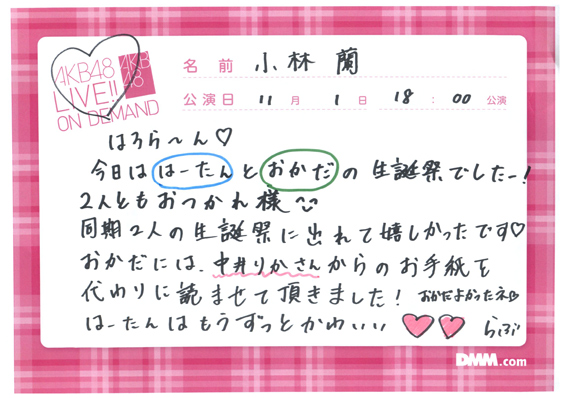 AKB48
LIVE!!
ON DEMAND
AKB
48
名前 小林 蘭
公演日 11月 1日 18:00 公演
はろら〜ん♡
今日は はーたん と おかだ の 生誕祭でしたー!
2人ともおつかれ様
同期2人の生誕祭に出れて嬉しかったです♡
おかだには、中井りかさんからのお手紙を
代わりに読ませて頂きました! おかだよかったネ
はーたんはもうずっとかわいい らぶ
DMM.com